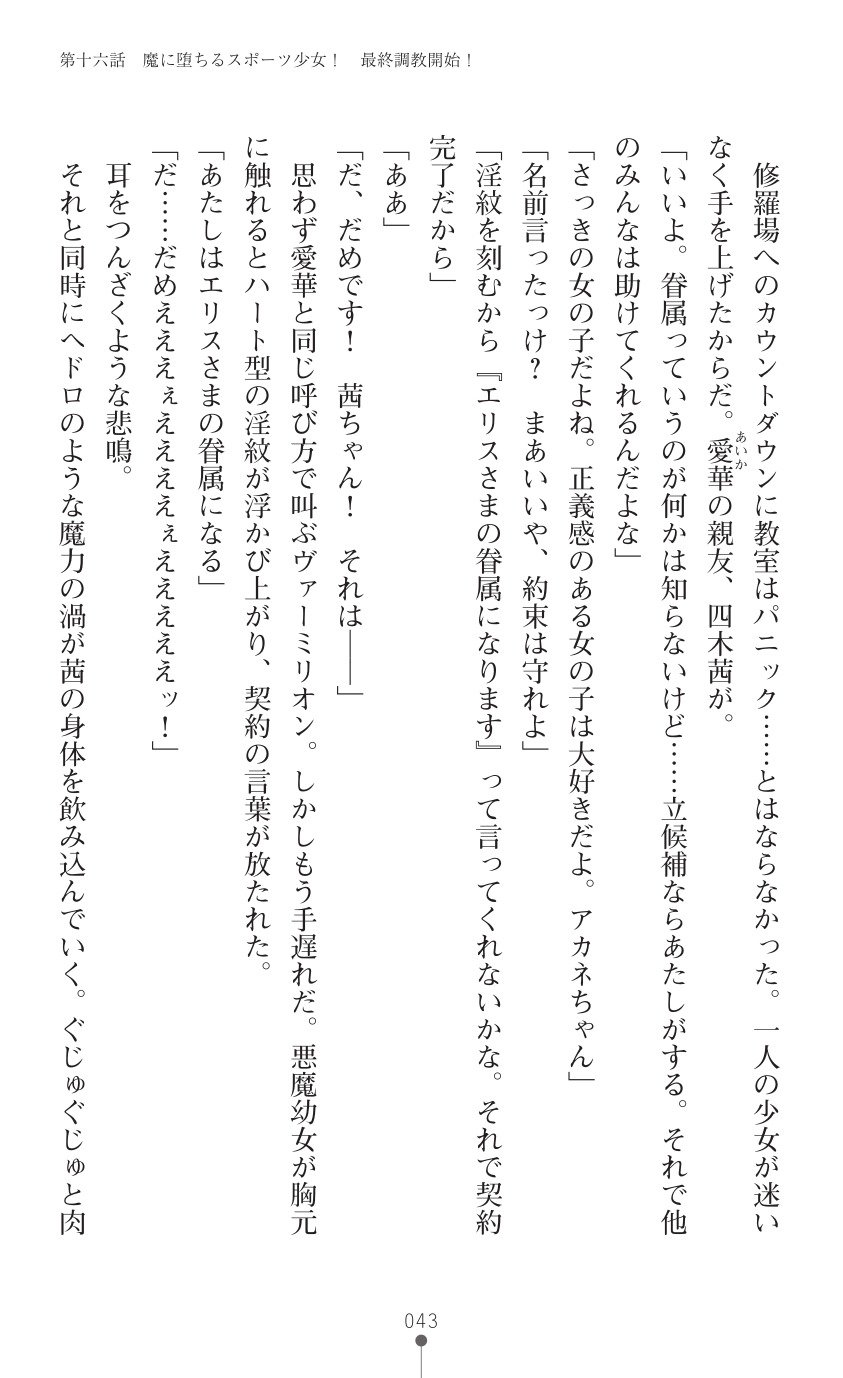 第十六話　魔に堕ちるスポーツ少女！　最終調教開始！
　修羅場へのカウントダウンに教室はパニック……とはならなかった。一人の少女が迷い
なく手を上げたからだ。愛華の親友、四木茜が。
あいか
「いいよ。眷属っていうのが何かは知らないけど……立候補ならあたしがする。それで他
のみんなは助けてくれるんだよな」
「さっきの女の子だよね。正義感のある女の子は大好きだよ。アカネちゃん」
「名前言ったっけ？　まあいいや、約束は守れよ」
「淫紋を刻むから『エリスさまの眷属になります』って言ってくれないかな。それで契約
完了だから」
「ああ」
「だ、だめです！　茜ちゃん！　それは――」
　思わず愛華と同じ呼び方で叫ぶヴァーミリオン。しかしもう手遅れだ。悪魔幼女が胸元
に触れるとハート型の淫紋が浮かび上がり、契約の言葉が放たれた。
「あたしはエリスさまの眷属になる」
「だ……だめえええぇえええええぇええええええッ！」
　耳をつんざくような悲鳴。
　それと同時にヘドロのような魔力の渦が茜の身体を飲み込んでいく。ぐじゅぐじゅと肉
043